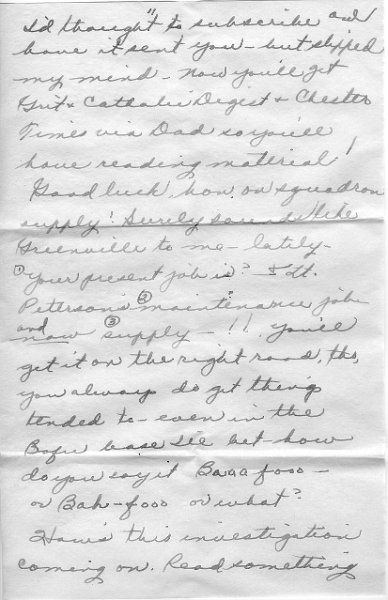 I'd thought to subscribe and
have it sent you - but slipped
my mind - Now you'll get
Grit & Catholic Digest & Chester
Times via Dad so you'll
have reading material!
Good luck hon. on squadron
supply! Surely sounds like
Greenville to me - lately -
① Your present job is? ② Lt.
Peterson's maintenance job
and now ③ supply - !! You'll
get it on the right road, tho,
you always do get things
tended to - even in the
Bofu base I'll bet - how
do you say it Baaa fooo -
or Bah-fooo or what?
How's this investigation
coming on. Read something